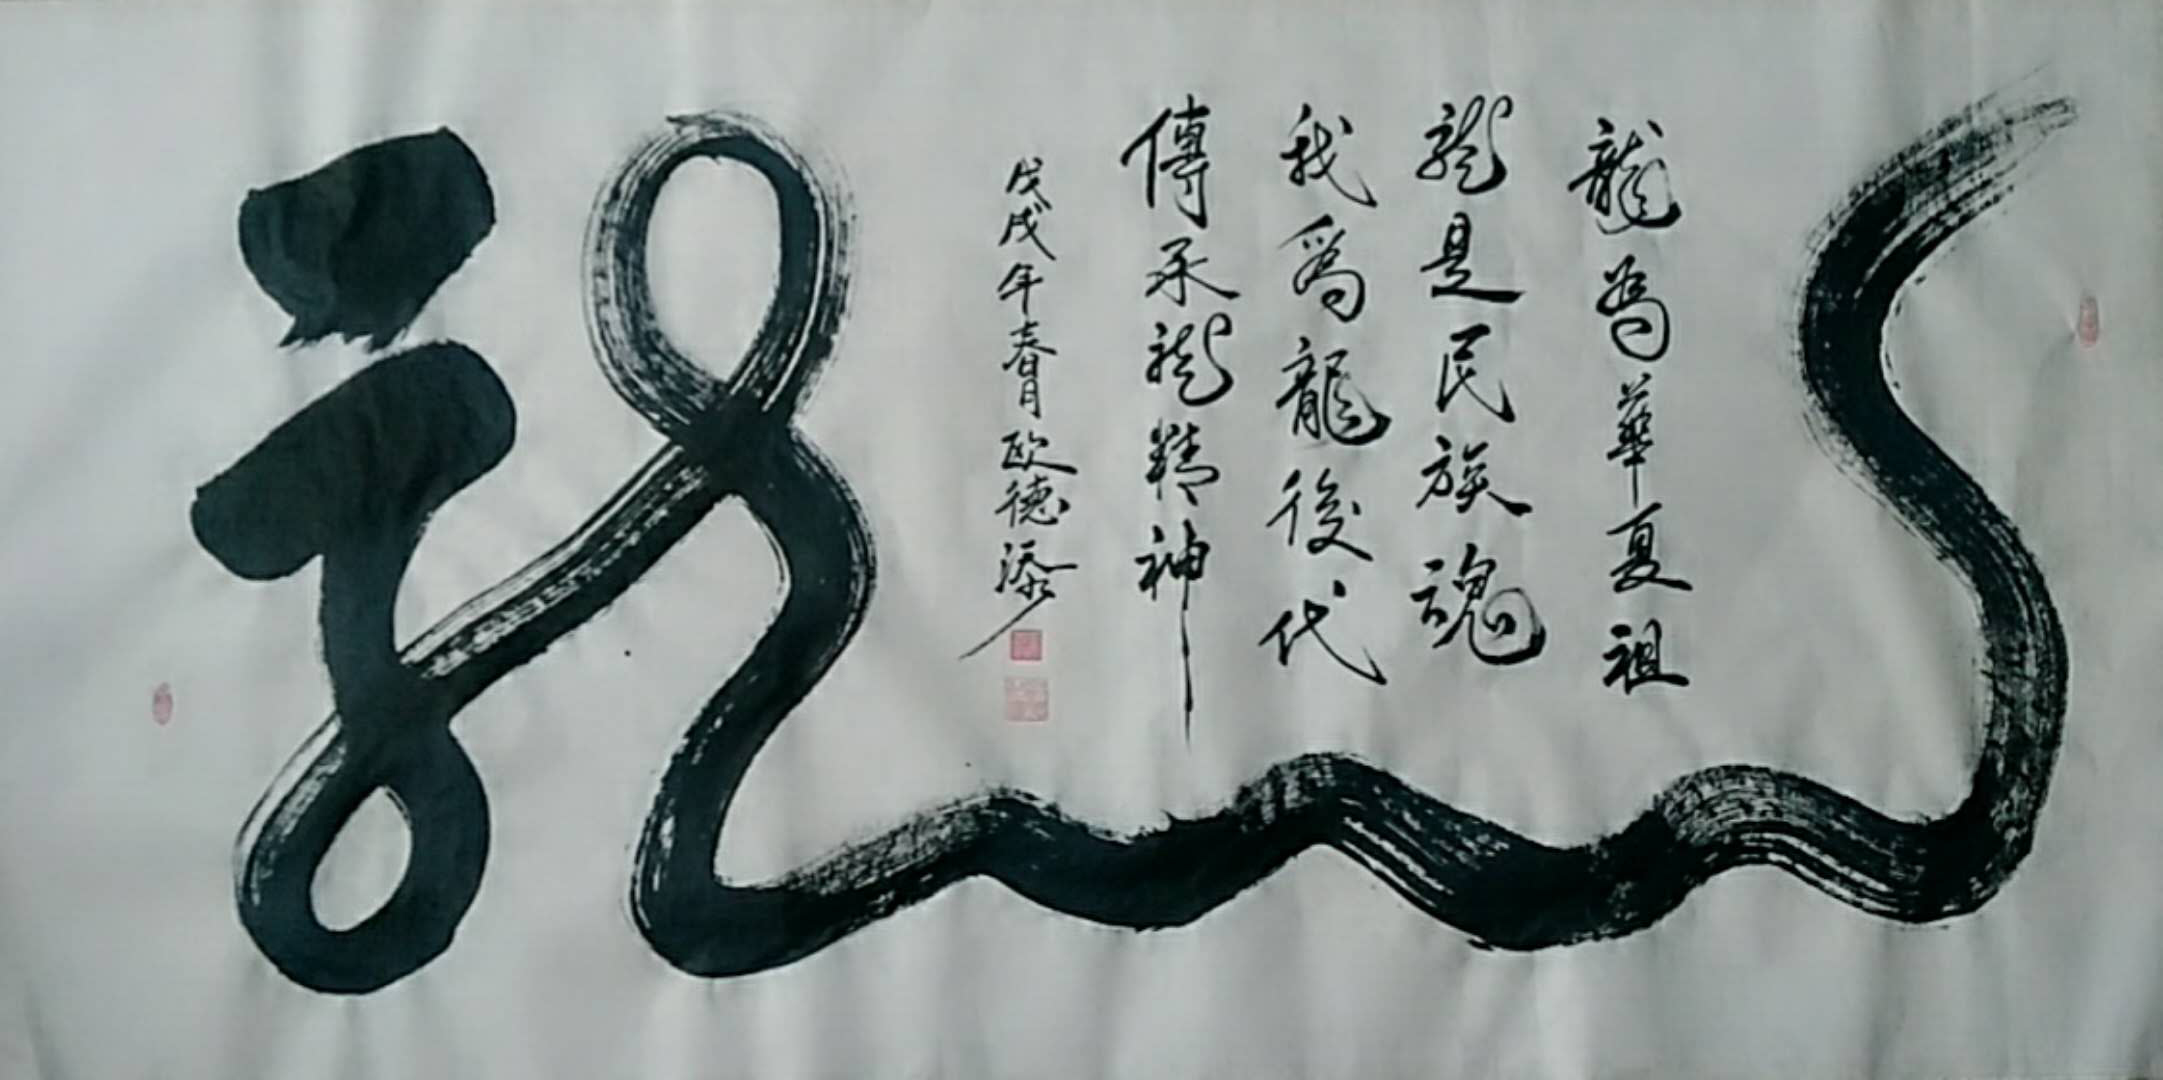 龍
龍為華夏祖
龍是民族魂
我為龍後代
傳承龍精神
戊戌年春月欧德添